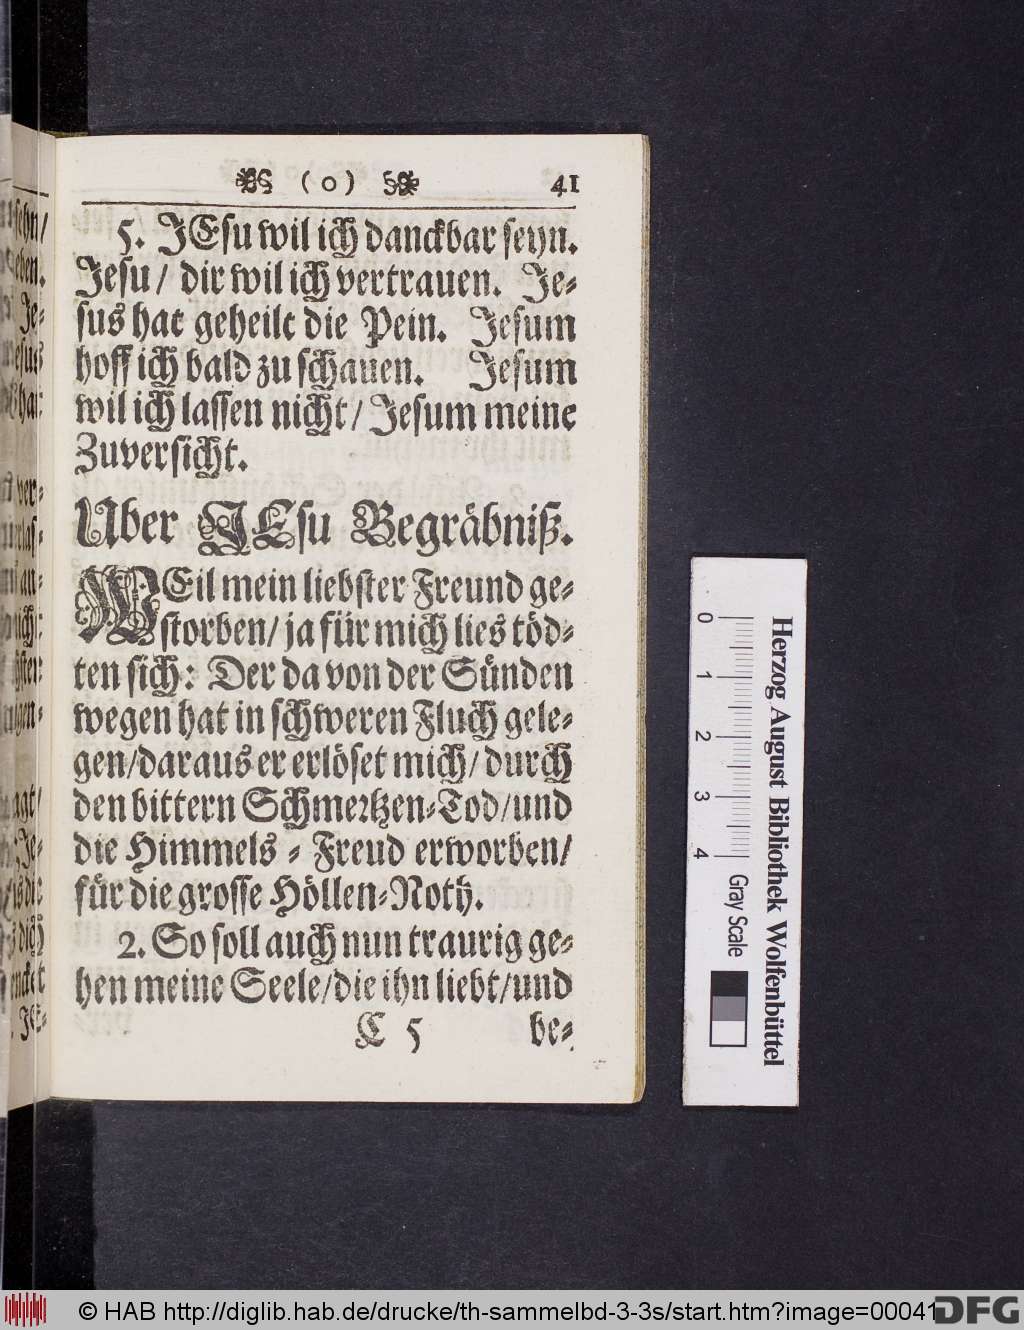 ( o ) 41
5. JEsu wil ich danckbar seyn.
Jesu / dir wil ich vertrauen. Je-
sus hat geheilt die Pein. Jesum
hoff ich bald zu schauen. Jesum
wil ich lassen nicht / Jesum meine
Zuversicht.
Uber JEsu Begräbniß.
WEil mein liebster Freund ge-
storben / ja für mich lies töd-
ten sich: Der da von der Sünden
wegen hat in schweren Fluch gele-
gen / daraus er erlöset mich / durch
den bittern Schmertzen-Tod / und
die Himmels-Freud erworben /
für die grosse Höllen-Noth.
2. So soll auch nun traurig ge-
hen meine Seele / die ihn liebt / und
C 5 be-
Herzog August Bibliothek Wolfenbüttel
0 1 2 3 4 Gray Scale
© HAB http://diglib.hab.de/drucke/th-sammelbd-3-3s/start.htm?image=00041
DFG